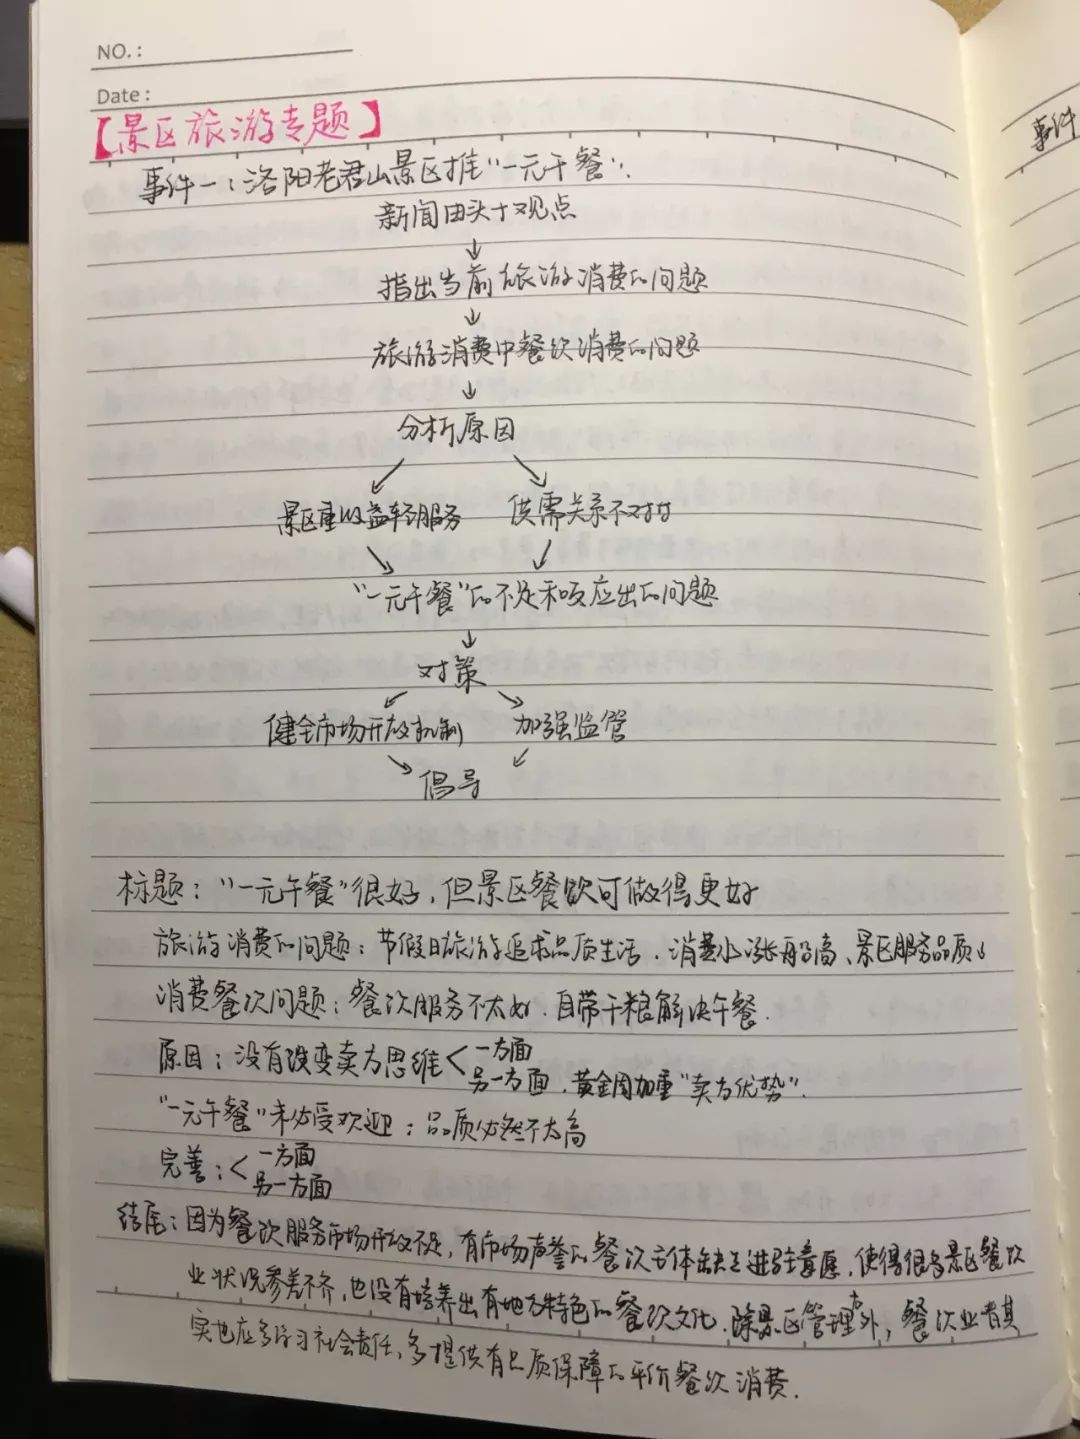 NO.:
Date:
【景区旅游专题】
事件
事件一：洛阳老君山景区推“一元午餐”.
新闻由头+观点
↓
指出当前旅游消费的问题
↓
旅游消费中餐饮消费的问题
↓
分析原因
↙ ↘
景区重收益轻服务 供需关系不对付
↘ ↓
“一元午餐”的不足和反应出的问题
↓
对策
↙ ↘
健全市场开放机制 加强监管
↘ ↙
倡导
标题：“一元午餐”很好，但景区餐饮可做得更好
旅游消费的问题：节假日旅游追求品质生活、消费水涨船高、景区服务品质↓
消费餐饮问题：餐饮服务不太好、自带干粮解决午餐.
原因：没有改变卖方思维<一方面
另一方面，黄金周加重“卖方优势”.
“一元午餐”未必受欢迎：品质必然不太高
完善：<一方面
另一方面
结尾：因为餐饮服务市场开放不足，有市场声誉的餐饮主体缺乏进驻意愿，使得很多景区餐饮
业状况参差不齐，也没有培养出有地方特色的餐饮文化. 除景区管理者外，餐饮业者其
实也应多学习社会责任，多提供有品质保障的平价餐饮消费.